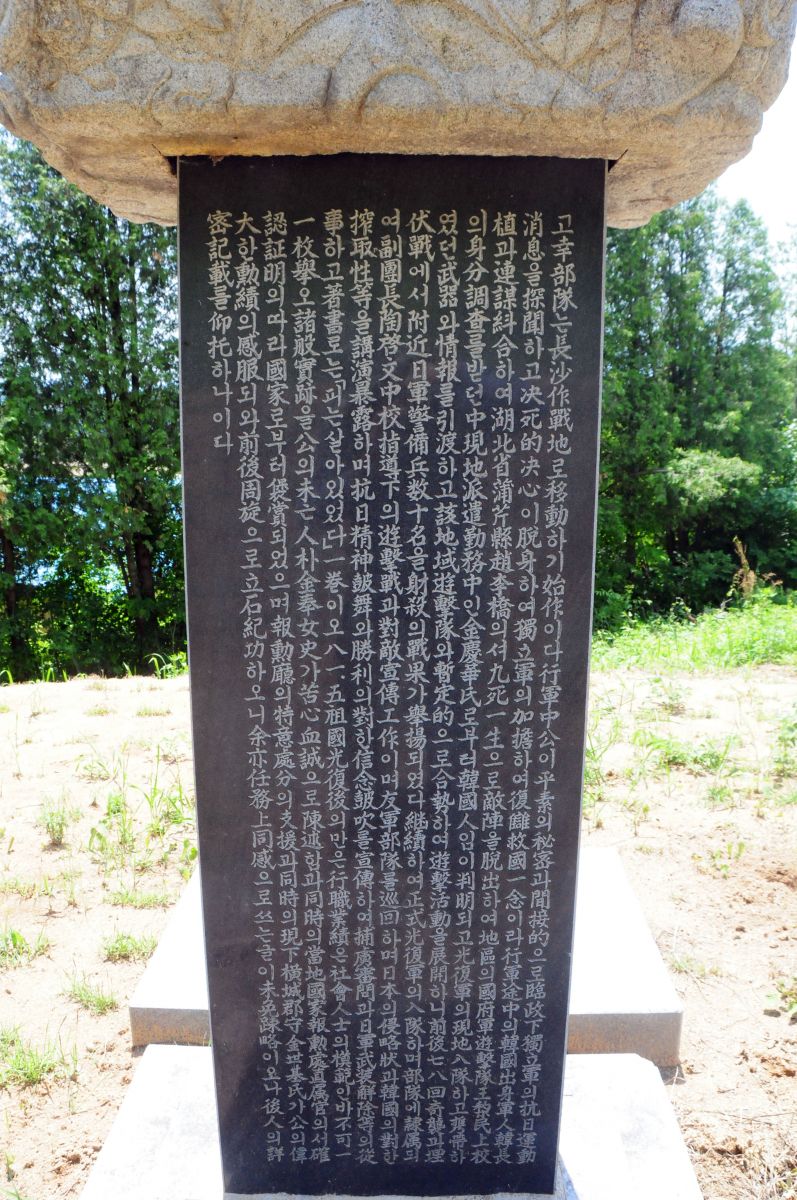 고 幸部隊는 長沙作戰地로 移動하기 始作이다 行軍中 公이 平素의 秘密과 間接的으로 臨政下 獨立軍의 抗日運動
消息을 探聞하고 決死的 決心이 脫身하여 獨立軍의 加擔하여 復讐救國一念이라 行軍途中의 韓國出身軍人 韓長
植과 連謀糾合하여 湖北省 蒲圻縣 趙李橋의서 九死一生으로 敵陣을 脫出하여 地區의 國府軍 遊擊隊 王 民上校
의 身分調査를 받던中 現地派遣 勤務中인 金慶華氏로부터 韓國人임이 判明되고 光復軍의 現地入隊하고 携帶하
였던 武器와 情報를 引渡하고 該地域 遊擊隊와 暫定的으로 合勢하여 遊擊活動을 展開하니 前後 七八回 奇襲과 埋
伏戰에서 附近 日軍警備兵 数十名을 射殺의 戰果가 擧揚되였다 継續하여 正式 光復軍의 入隊하며 部隊에 隸属되
여 副團長 陶啓文 中校 指導下의 遊擊戰과 對敵宣傳工作이며 友軍部隊를 巡回하며 日本의 侵略狀과 韓國의 對한
搾取性等을 講演暴露하며 抗日精神 皷舞와 勝利의 對한 信念 皷吹를 宣傳하여 捕虜審問과 日軍武装解除等의 從
事하고 著書로는 「피는 살아있었다」 一巻이오 八一·五 祖國光復後의 만은 行職業績은 社會人士의 模範인바 不可一
一枚擧오 諸般實跡을 公의 未亡人 朴金奉女史가 苦心血誠으로 陳述함과 同時의 當地 國家報勳處 直属官의서 確
認証明의 따라 國家로부터 褒賞되었으며 報勳廳의 特意處分의 支援과 同時의 現下 橫城郡守 金世基氏가 公의 偉
大한 勳績의 感服되와 前後周旋으로 立石紀功하오니 余亦任務上 同感으로 쓰는글이 未免疎略이오나 後人의 詳
密記載를 仰托하나이다